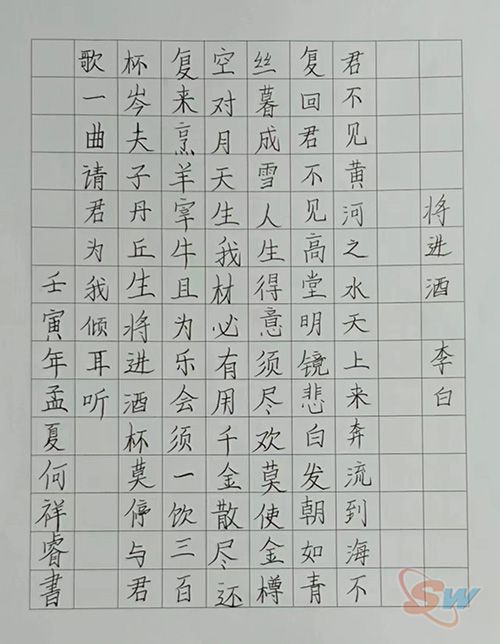 将进酒 李白
君不见黄河之水天上来奔流到海不
复回君不见高堂明镜悲白发朝如青
丝暮成雪人生得意须尽欢莫使金樽
空对月天生我材必有用千金散尽还
复来烹羊宰牛且为乐会须一饮三百
杯岑夫子丹丘生将进酒杯莫停与君
歌一曲请君为我倾耳听
壬寅年孟夏何祥睿書
SW